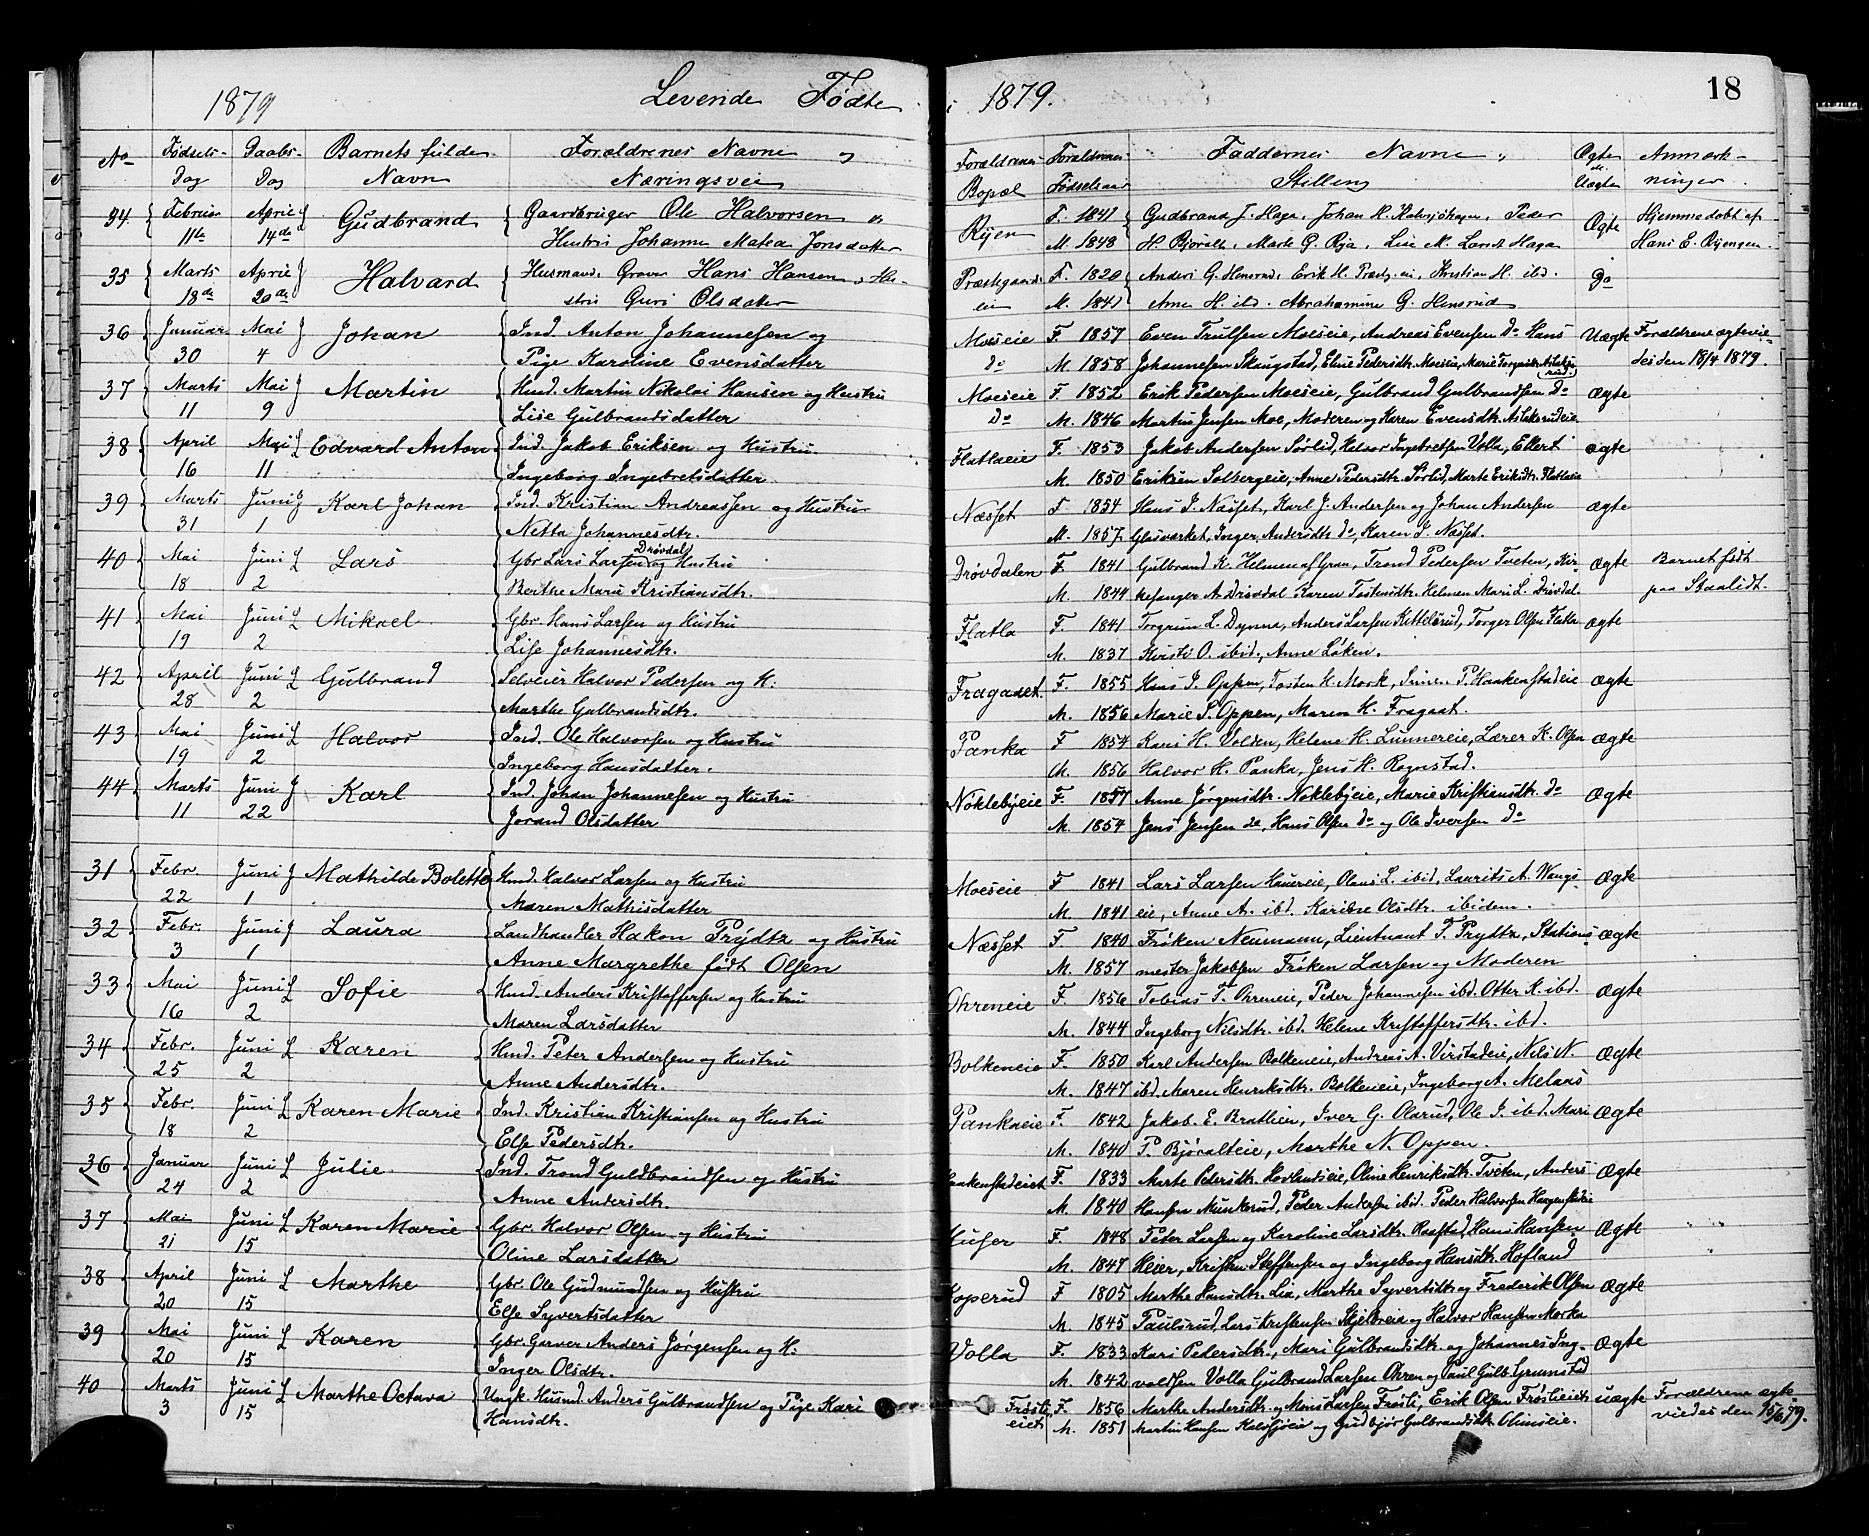 1879 Levende Fødte i 1879. 18
No Fødsels- Daabs- Barnets fulde Forældrenes Navne og Forældrenes Forældrenes Faddernes Navne og Ægte Anmærk-
Dag Dag Navn Næringsvei Bopæl Fødselsaar Stilling Uægte ninger
34. Februar April Gudbrand Gaardbruger Ole Halvorsen og Ryen F. 1841 Gudbrand J. Haga, Johan H. Peder Ægte Hjemmedøbt af
11te 14de Hustru Johanne Matea Jonsdatter M. 1848 H. Bjøralt, Marte G. Rya, Lise M. Haga Hans E. Ryengen.
35 Marts April Halvard Husmand, Graver Hans Hansen og Hu- Præstegaards- F. 1820 Anders G. Hensrud, Erik H. Præstg.ei, Kristian H. ibd. Do
18de 20de stru Guri Olsdatter eie M. 1841 Anne H. ibd. Abrahamine G. Hensrud
36 Januar Mai Johan Ind. Anton Johannesen og Moeseie F. 1857 Even Trulsen Moeseie, Andreas Evensen Do Hans Uægte Forældrene ægtevie-
30 4 Pige Karoline Evensdatter do M. 1858 Johannesen Skaugstad, Eline Pedersdtr. Moeseie, Marie des den 18/4 1879.
37 Marts Mai Martin Hmd. Martin Nikolai Hansen og Hustru Moeseie F. 1852 Erik Pedersen Moeseie, Gulbrand Gulbrandsen Do ægte
11 9 Lise Gulbrandsdatter Do M. 1846 Martin Jensen Moe, Moderen og Karen Evensdtr. Aslaksrudeie
38 April Mai Edvard Anton Ind. Jakob Eriksen og Hustru Flatlaeie F. 1853 Jakob Andersen Sørlid, Halvor Ingebretsen Volla, Ellert ægte
16 11 Ingeborg Ingebretsdatter M. 1850 Eriksen Solbergeie, Anne Pedersdtr. Sørlid, Marte Eriksdtr. Flatlaeie
39 Marts Juni Karl Johan Ind. Kristian Andreassen og Hustru Næsset F 1854 Hans J. Næsset, Karl J. Andersen og Johan Andersen ægte
31 1 Netta Johannesdtr. M. 1857 Glasværket, Inger Andersdtr. do Karen J. Næsset.
40 Mai Juni Lars Gbr. Lars Larsen Drøvdal og Hustru Drøvdalen F. 1841 Gulbrand K. Helmen af Gran, Trond Pedersen Tveten, Kir- ægte Barnet født
18 2 Berthe Marie Kristiansdtr. M. 1844 kesanger A. Drøvdal Karen Tostensdtr. Helmen Mari L. Drøvdal. paa Staalidt.
41 Mai Juni Mikael Gbr. Hans Larsen og Hustru Flatla F 1841 Torgrim L. Dynna, Anders Larsen Kittelsrud, Torger Olsen Flatla ægte
19 2 Lise Johannesdtr. M. 1837 Kristi O. ibid., Anne Løken.
42 April Juni Gulbrand Selveier Halvor Pedersen og H. Fragaaet F. 1855 Hans J. Oppen, Tosten H. Mork, Simen P. Haakenstadeie ægte
28 2 Marthe Gulbrandsdtr. M. 1856 Marie S. Oppen, Maren H. Fragaat.
43 Mai Juni Halvor Ind. Ole Halvorsen og Hustru Panka F 1854 Kari H. Volden, Helene H. Lunnereie, Lærer K. Olsen ægte
19 2 Ingeborg Hansdatter. M. 1856 Halvor H. Panka, Jens H. Rognstad.
44 Marts Juni Karl Ind. Johan Johannesen og Hustru Nøklebyeie F. 1857 Anne Jørgensdtr. Nøklebyeie, Marie Kristiansdtr. do ægte
11 22 Jorand Olsdatter M. 1854 Jens Jensen do, Hans Olsen do og Ole Iversen do
31 Febr. Juni Mathilde Bolette Hmd. Halvor Larsen og Hustru Moeseie F 1841 Lars Larsen Hauereie, Olaus L. ibid, Laurits A. Wangs- Ægte
22 1 Maren Mathisdatter M. 1841 eie, Anne A. ibd. Karine Olsdtr. ibidem.
32 Febr. Juni Laura Landhandler Hakon Prydtz og Hustru Næsset F 1840 Frøken Neumann, Lieutnant T. Prydtz, Stations- ægte
3 1 Anne Margrethe født Olsen M. 1857 mester Jakobsen Frøken Larsen og Moderen
33 Mai Juni Sofie Hmd. Anders Kristoffersen og Hustru Ohreneie F 1856 Tobias T. Ohreneie, Peder Johannesen ibd. Otter K. ibd. Ægte
16 2 Maren Larsdatter M. 1844 Ingeborg Nilsdtr. ibd. Helene Kristoffersdtr. ibd.
34 Febr. Juni Karen Hmd. Peter Andersen og Hustru Bolkeneie F. 1850 Karl Andersen Bolkeneie, Andreas A. Virstadeie, Nils N. Ægte
25 2 Anne Andersdtr. M. 1847 ibd. Maren Henriksdtr. Bolkeneie, Ingeborg A. Melaas
35 Febr. Juni Karen Marie Ind. Kristian Kristiansen og Hustru Pankaeie F. 1842 Jakob. E. Bratlien, Iver G. Olarud, Ole J. ibd. Mari Ægte
18 2 Else Pedersdtr. M. 1840 P. Bjøralteie, Marthe N. Oppen.
36 Januar Juni Julie Ind. Trond Guldbrandsen og Hustru Haakenstadeiet F. 1833 Marte Pedersdtr. Hovlandseie, Oline Henriksdtr. Tveten, Anders Ægte
24 2 Anne Andersdtr. M. 1840 Hansen Munkerud, Peder Andersen ibid. Peder Halvorsen
37 Mai Juni Karen Marie Gbr. Halvor Olsen og Hustru Huser F. 1848 Peter Larsen og Karoline Larsdtr. Raastad, Hans Hansen Ægte
21 15 Oline Larsdatter M. 1847 Heier, Kristen Steffensen og Ingeborg Hansdtr. Hofland
38 April Juni Marthe Gbr. Ole Gudmundsen og Hustru Koperud F 1805 Marthe Hansdtr. Lia, Marthe Syvertsdtr. og Frederik Olsen Ægte
20 15 Else Syvertsdatter M. 1845 Paulsrud, Lars Kristensen Skjelbreia og Halvor Hansen Morka
39 Mai Juni Karen Gbr. Garver Anders Jørgensen og H. Volla F. 1833 Kari Pedersdtr., Mari Gulbrandsdtr. og Johannes Ing- Ægte
20 15 Inger Olsdtr. M. 1842 valdsen Volla Gulbrand Larsen Ohren og Paul Gulb. Grinstad
40 Marts Juni Marthe Octava Ungk. Husmd. Anders Gulbrandsen og Pige Kari Frøsli- F. 1856 Marthe Andersdtr. og Mons Larsen Frøsli, Erik Olsen Frøslieiet uægte Forældrene ægte-
3 15 Hansdtr. eiet M. 1851 Martin Hansen og Gudbjør Gulbrandsdtr. viedes den 15/6 79.